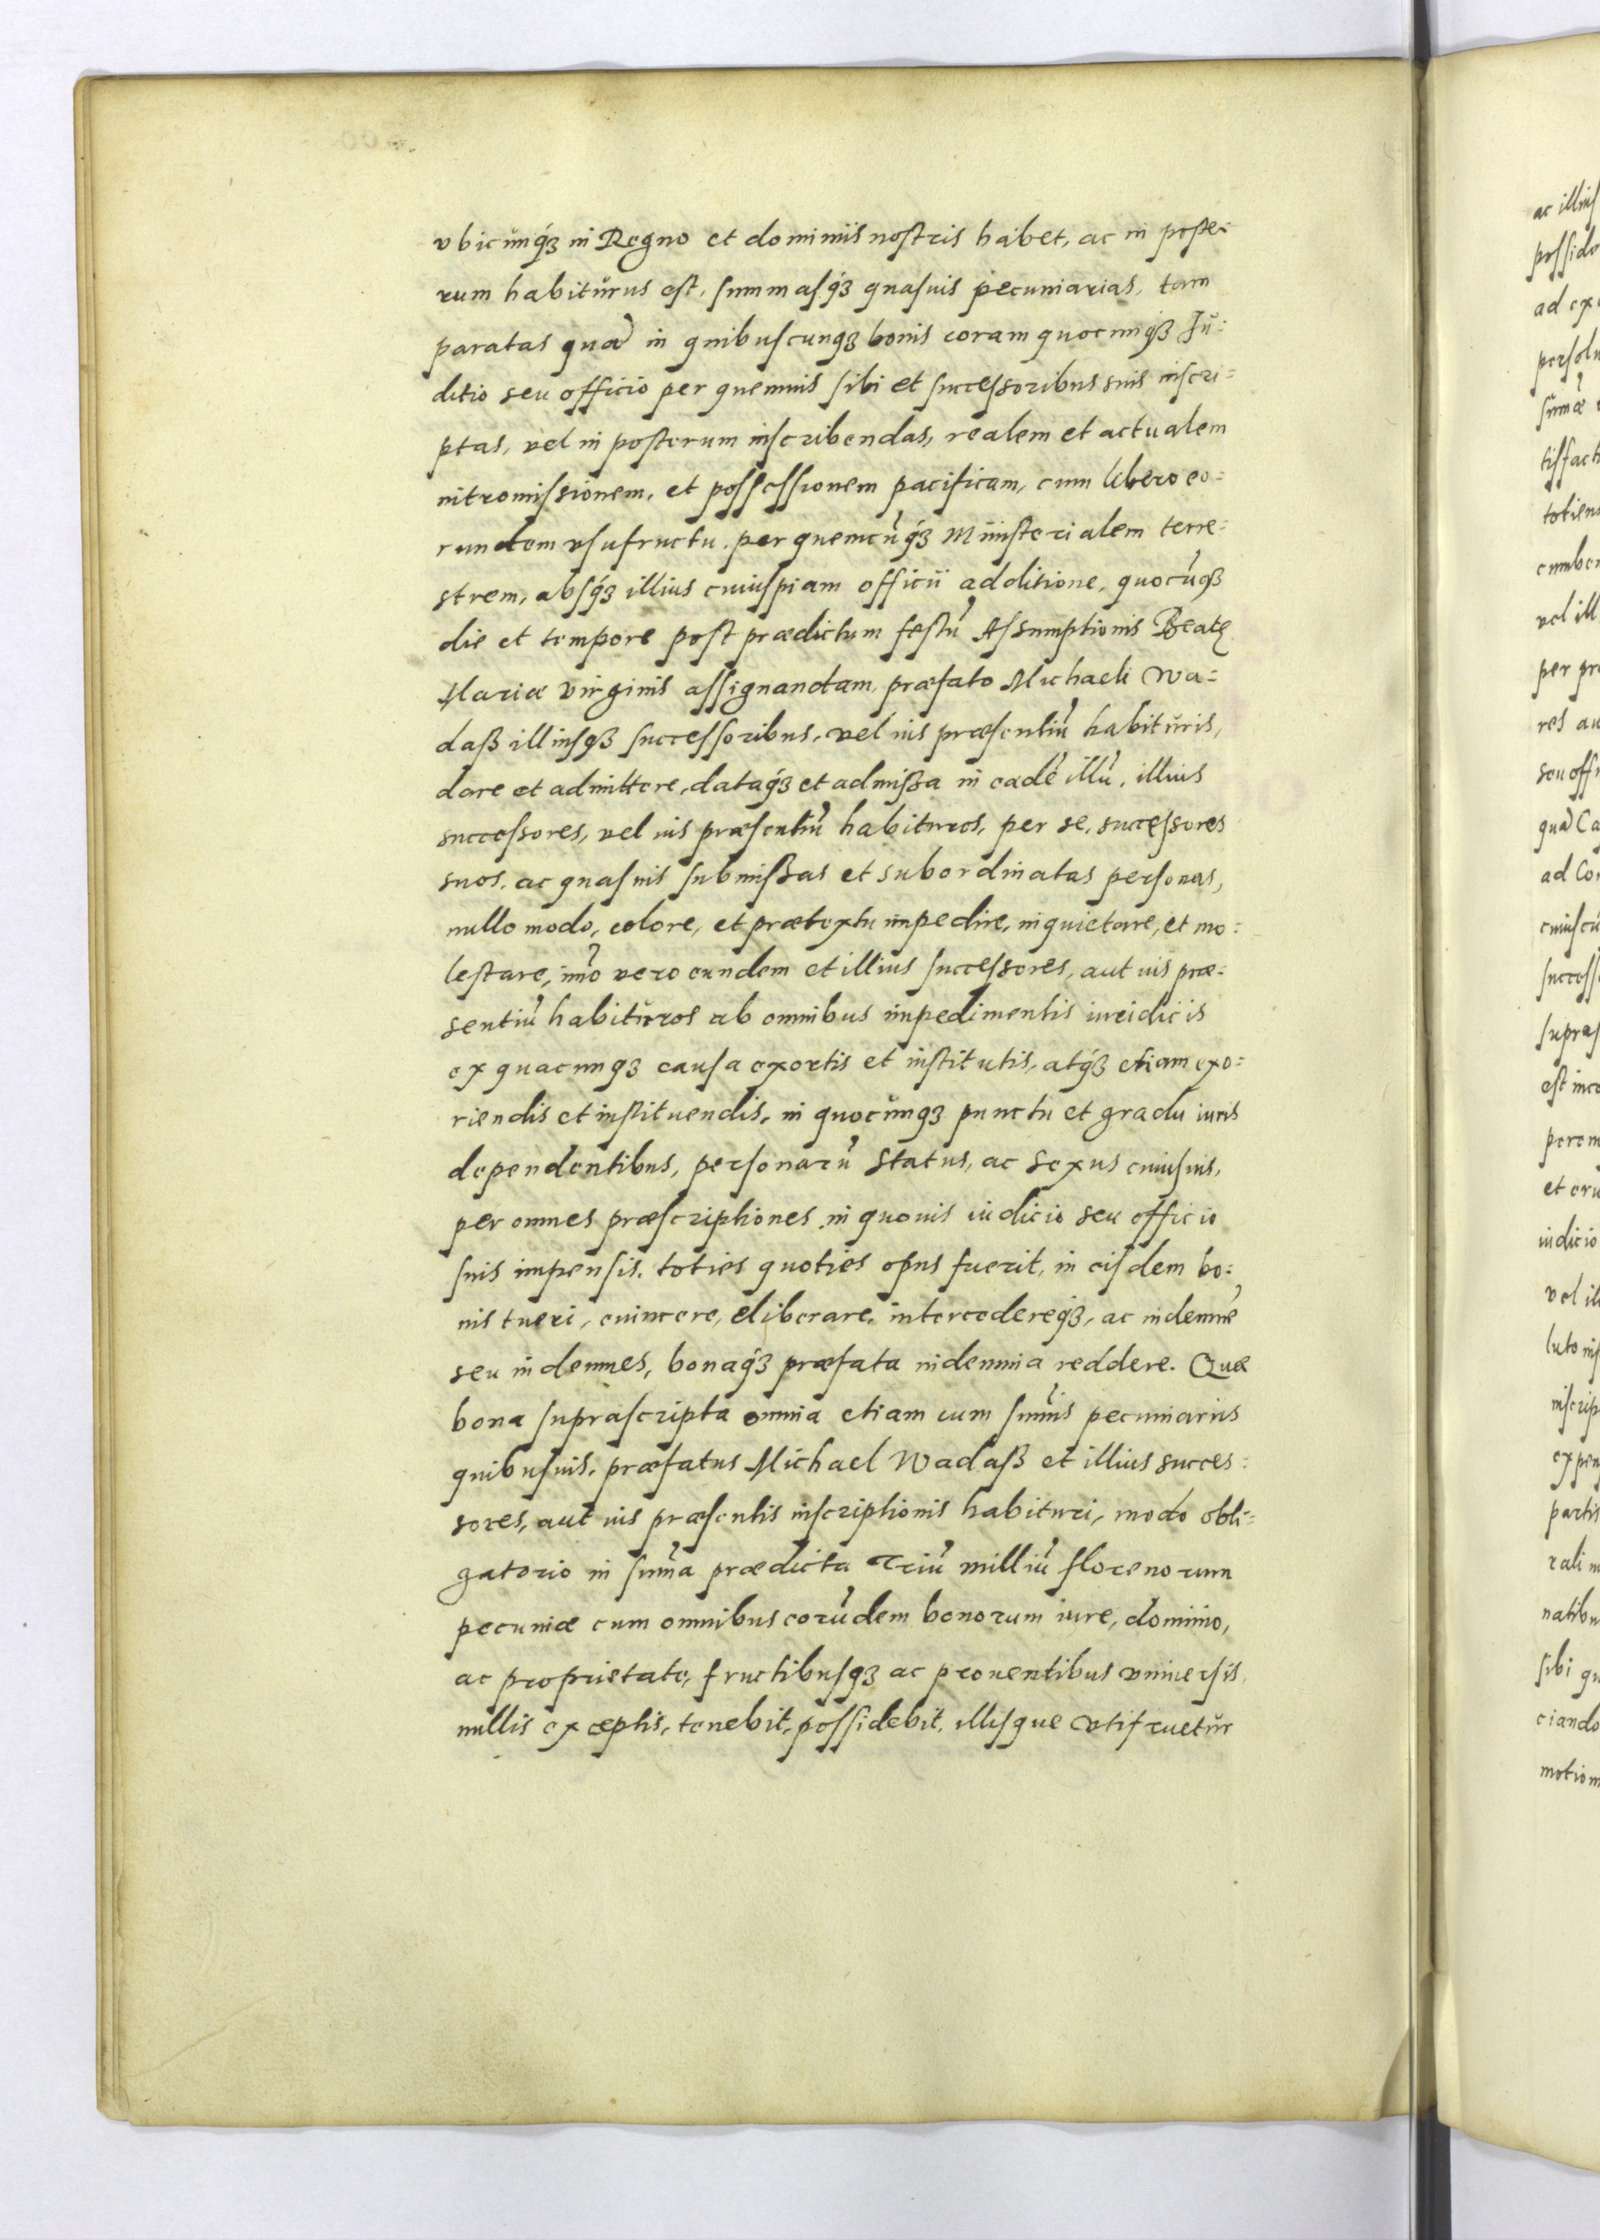 vbicunq́ꝫ in Regno et dominiis nostris habet, ac in poste:
rum habitŭrus est, summasq́ꝫ quasuis pecuniarias, tam
paratas quā in quibuscunqꝫ bonis coram quocunqꝫ Iŭ:
ditio seu officio per quemuis sibi et successoribus suis inscri:
ptas, vel in posterum inscribendas, realem et actualem
intromissionem, et possessionem pacificam, cum libero eo:
rundem vsufructu, per quemcūq́ꝫ Ministerialem terre:
strem, absq́ꝫ illius cuiuspiam officii additione, quocūqꝫ
die et tempore post prædictum festū Assumptionis Beatę
Mariæ virginis assignandam, præfato Michaeli Wa:
daß illiusqꝫ successoribus, vel ius præsentiū habitŭris,
dare et admittere, dataq́ꝫ et admißa in eadē illū, illius
successores, vel ius præsentiū habituros, per se, successores
suos, ac quasuis submißas et subordinatas personas,
nullo modo, colore, et prætextu impedire, inquietare, et mo:
lestare, im̄o vero eundem et illius successores, aut ius præ:
sentiū habitŭros ab omnibus impedimentis iuridicis
ex quacunqꝫ causa exortis et institutis, atq́ꝫ etiam exo:
riendis et instituendis, in quocŭnqꝫ punctu et gradu iuris
dependentibus, personarū status, ac sexus cuiusuis,
per omnes præscriptiones in quouis iudicio seu officio
suis impensis, toties quoties opus fuerit, in eisdem bo:
nis tueri, euincere, eliberare, intercedereq́ꝫ, ac indemnē
seu indemnes, bonaq́ꝫ præfata indemnia reddere. Quæ
bona suprascripta omnia etiam cum sum̄is pecuniariis
quibusuis, præfatus Michael Wadaß et illius succes:
sores, aut ius præsentis inscriptionis habituri, modo obli:
gatorio in sum̄a prædicta Triū milliū florenorum
pecuniæ cum omnibus eorūdem bonorum iure, dominio,
ac proprietate, fructibusqꝫ ac prouentibus vniuersis
nullis exceptis, tenebit, possidebit, illisque vtifruetŭr